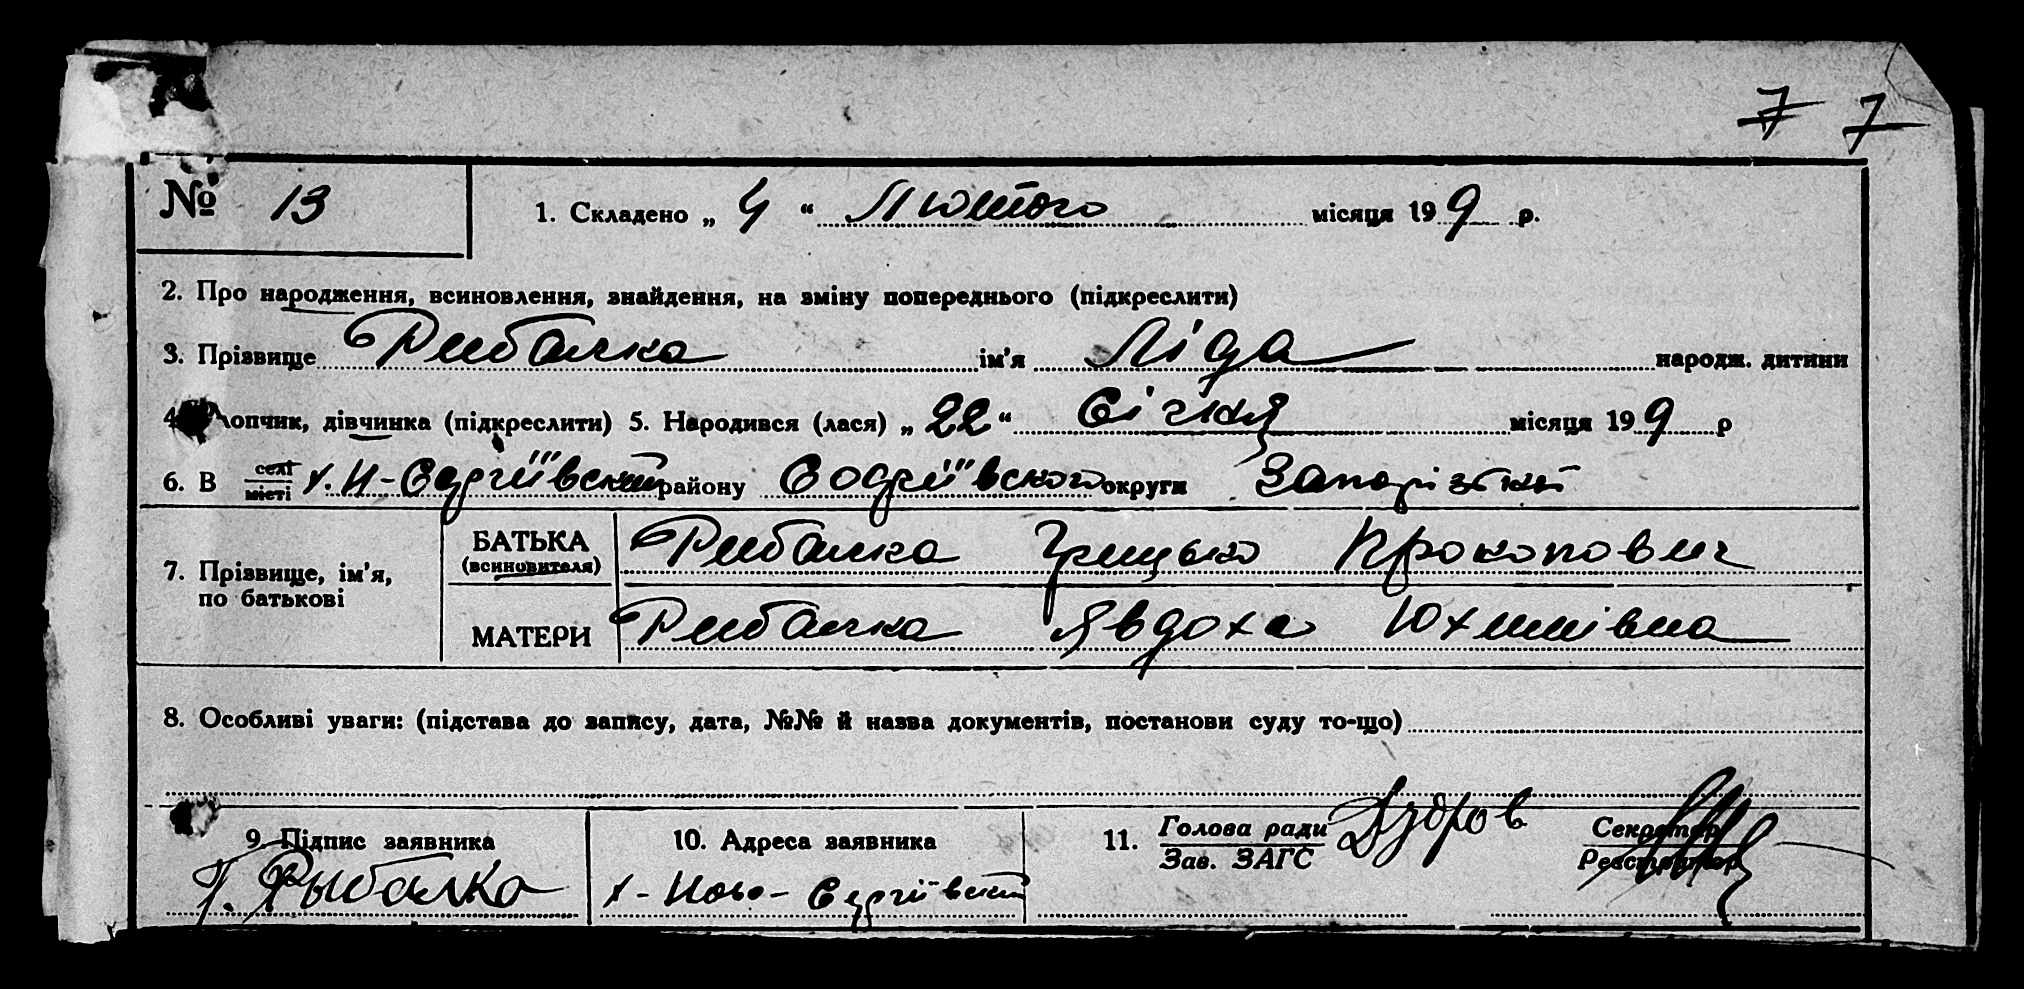 7 7
№ 13 1. Складено „ 4 “ Лютого місяця 19 9 р.
2. Про народження, всиновлення, знайдення, на зміну попереднього (підкреслити)
3. Прізвище Рибалка ім’я Ліда народж. дитини
4. Хлопчик, дівчинка (підкреслити) 5. Народився (лася) „ 22 “ Січня місяця 19 9 р
6. В селі місті х. Н-Сергіївський району Софіївського округи Запорізької
7. Прізвище, ім’я, по батькові
БАТЬКА (всиновителя) Рибалка Грицько Прокопович
МАТЕРИ Рибалка Явдоха Юхимівна
8. Особливі уваги: (підстава до запису, дата, №№ й назва документів, постанови суду то-що)
9. Підпис заявника 10. Адреса заявника 11. Голова ради Зав. ЗАГС Секретар Реєстратор
Г. Рыбалка х-Ново-Сергіївський